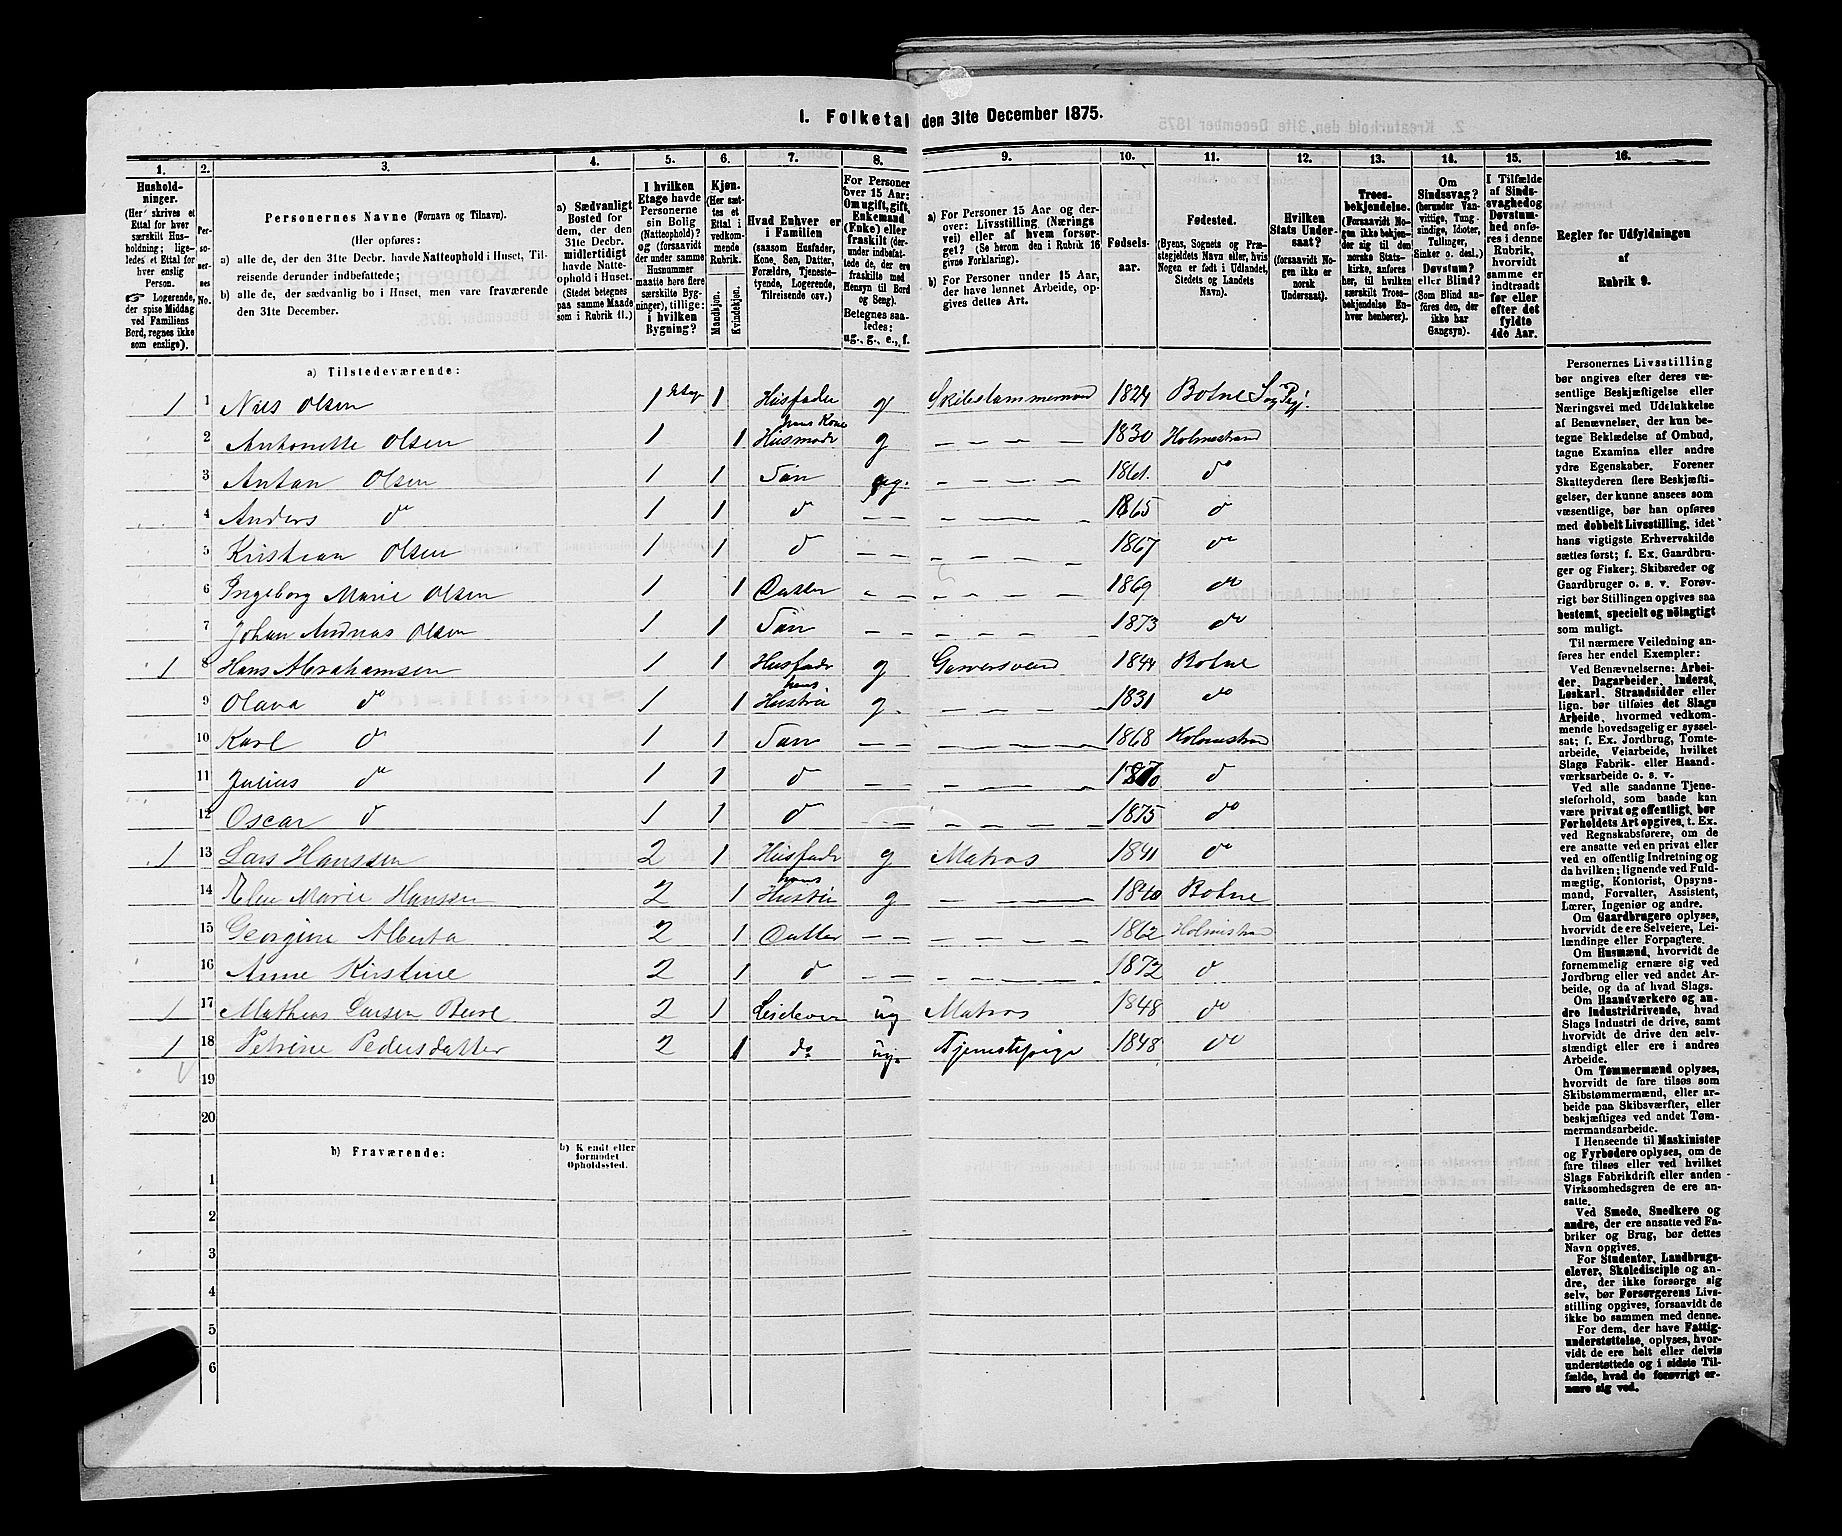 1. Folketal den 31te December 1875.
1. 2. 3. 4. 5. 6. 7. 8. 9. 10. 11. 12. 13. 14. 15. 16.
Hushold-
ninger.
(Her skrives et
Ettal for hver
særskilt Hus-
holdning; lige-
ledes et Ettal for
hver enslig
Person.
☞ Logerende,
der spise Middag
ved Familiens
Bord, regnes ikke
som enslige).
Per-
so-
ner-
nes
No.
Personernes Navne (Fornavn og Tilnavn).
(Her opføres:
a) alle de, der den 31te Decbr. havde Natteophold i Huset, Til-
reisende derunder indbefattede;
b) alle de, der sædvanlig bo i Huset, men vare fraværende
den 31te December.
a) Sædvanligt
Bosted for
dem, der den
31te Decbr.
midlertidigt
havde Natte-
ophold i Huset.
(Stedet betegnes
paa samme Maade
som i Rubrik 11.)
I hvilken
Etage havde
Personerne
sin Bolig
(Natteophold)?
og (forsaavidt
der under samme
Husnummer
maatte høre flere
særskilte Byg-
ninger), tillige:
i hvilken
Bygning?
Kjøn.
(Her sæt-
tes et
Ettal i
vedkom-
mende
Rubrik.
Mandkjøn.
Kvindekjøn.
Hvad Enhver er
i Familien
(saasom Husfader,
Kone, Søn, Datter,
Forældre, Tjeneste-
tyende, Logerende,
Tilreisende osv.)
For Personer
over 15 Aar:
Om ugift, gift,
Enkemand
(Enke) eller
fraskilt (der-
under indbefat-
tede de, der ere
fraskilte med
Hensyn til Bord
og Seng).
Betegnes saa-
ledes:
ug., g., e., f.
a) For Personer 15 Aar og der-
over: Livsstilling (Nærings
vei) eller af hvem forsør-
get? (Se herom den i Rubrik 16
givne Forklaring).
b) For Personer under 15 Aar,
der have lønnet Arbeide, op-
gives dettes Art.
Fødsels-
aar.
Fødested.
(Byens, Sognets og Præ-
stegjeldets Navn eller, hvis
Nogen er født i Udlandet,
Stedets og Landets
Navn).
Hvilken
Stats Under-
saat?
(forsaavidt No-
gen ikke er
norsk
Undersaat).
Troes-
bekjendelse.
(Forsaavidt No-
gen ikke bekjen-
der sig til den
norske Stats-
kirke, anføres
her, til hvilken
særskilt Troes-
bekjendelse En-
hver henhører).
Om
Sindssvag?
(herunder Van-
vittige, Tung-
sindige, Idioter,
Tullinger,
Sinker o. desl.)
Døvstum?
eller Blind?
(Som Blind an-
føres den, der
ikke har
Gangsyn).
I Tilfælde
af Sinds-
svaghed og
Døvstum-
hed anfø-
res i denne
Rubrik,
hvorvidt
samme er
indtraadt
før eller
efter det
fyldte
4de Aar.
Regler for Udfyldningen
af
Rubrik 9.
a) Tilstedeværende:
1 1 Niels Olsen 1 Etage 1 Husfader g Skibstømmermand 1824 Botne Sog Pgj.
hans Kone
2 Antonette Olsen 1 1 Husmodr g 1830 Holmestrand
3 Anton Olsen 1 1 Søn ug. 1861. do
4 Anders do 1 1 do 1865 do
5 Kristian Olsen 1 1 do 1867 do
6 Ingeborg Marie Olsen 1 1 Datter 1869 do
7 Johan Andreas Olsen 1 1 Søn 1873 do
1 8 Hans Abrahamsen 1 1 Husfadr g Garversvend 1844 Botne
hans
9 Olava do 1 1 Hustru g. 1831 do
10 Karl do 1 1 Søn 1868 Holmestran
11 Julius do 1 1 do 1870 do
12 Oscar do 1 1 do 1875 do
1 13 Lars Hanssen 2 1 Husfadr g Matros 1841 do
hans
14 Elen Marie Hanssen 2 1 Hustru g 1840 Botne
15 Georgine Alberta 2 1 Datter 1862 Holmestran
16 Anne Kirstine 2 1 do 1872 do
1 17 Mathias Larsen 2 1 ug Matros 1848 do
1 18 Petrine Pedersdatter 2 1 do ug. Tjenestepige 1848 do
19
20
b) Fraværende:
b) Kjendt eller
formodet
Opholdssted.
1
2
3
4
5
6
Personernes Livsstilling
bør angives efter deres væ-
sentlige Beskjæftigelse eller
Næringsvei med Udelukkelse
af Benævnelser, der kun be-
tegne Beklædelse af Ombud,
tagne Examina eller andre
ydre Egenskaber. Forener
Skatteyderen flere Beskjæfti-
gelser, der kunne ansees som
væsentlige, bør han opføres
med dobbelt Livsstilling, idet
hans vigtigste Erhvervskilde
sættes først; f. Ex. Gaardbru-
ger og Fisker; Skibsreder og
Gaardbruger o. s. v. Forøv-
rigt bør Stillingen opgives saa
bestemt, specielt og nöiagtigt
som muligt.
Til nærmere Veiledning an-
føres her endel Exempler:
Ved Benævnelserne: Arbei-
der, Dagarbeider, Inderst,
Løskarl, Strandsidder eller
lign. bør tilføies det Slags
Arbeide, hvormed vedkom-
mende hovedsagelig er syssel-
sat; f. Ex. Jordbrug, Tomte-
arbeide, Veiarbeide, hvilket
Slags Fabrik- eller Haand-
værksarbeide o. s. v.
Ved alle saadanne Tjene-
steforhold, som baade kan
være privat og offentligt, bør
Forholdets Art opgives, t. Ex.
ved Regnskabsførere, om de
ere ansatte ved en privat eller
ved en offentlig Indretning og
da hvilken; lignende ved Fuld-
mægtig, Kontorist, Opsyns-
mand, Forvalter, Assistent,
Lærer, Ingeniør og andre.
Om Gaardbrugere oplyses,
hvorvidt de ere Selveiere, Lei-
lændinge eller Forpagtere.
Om Husmænd, hvorvidt de
fornemmelig ernære sig ved
Jordbrug eller ved andet Ar-
beide, og da af hvad Slags.
Om Haandværkere og an-
dre Industridrivende, hvad
Slags Industri de drive, samt
hvorvidt de drive den selv-
stændigt eller ere i andres
Arbeide.
Om Tømmermænd oplyses,
hvorvidt de fare tilsøs som
Skibstømmermænd, eller ar-
beide paa Skibsværfter, eller
beskjæftiges ved andet Tøm-
mermandsarbeide.
I Henseende til Maskinister
og Fyrbødere oplyses, om de
fare tilsøs eller ved hvilket
Slags Fabrikdrift eller anden
Virksomhedsgren de ere an-
satte.
Ved Smede, Snedkere og
andre, der ere ansatte ved Fa-
briker og Brug, bør dettes
Navn opgives.
For Studenter, Landbrugs-
elever, Skoledisciple og an-
dre, der ikke forsørge sig
selv, bør Forsørgerens Livs-
stilling opgives, forsaavidt de
ikke bo sammen med denne.
For dem, der have Fattig-
understøttelse, oplyses, hvor-
vidt de ere helt eller delvis
understøttede og i sidste Til-
fælde, hvad de forøvrigt er-
nære sig ved.